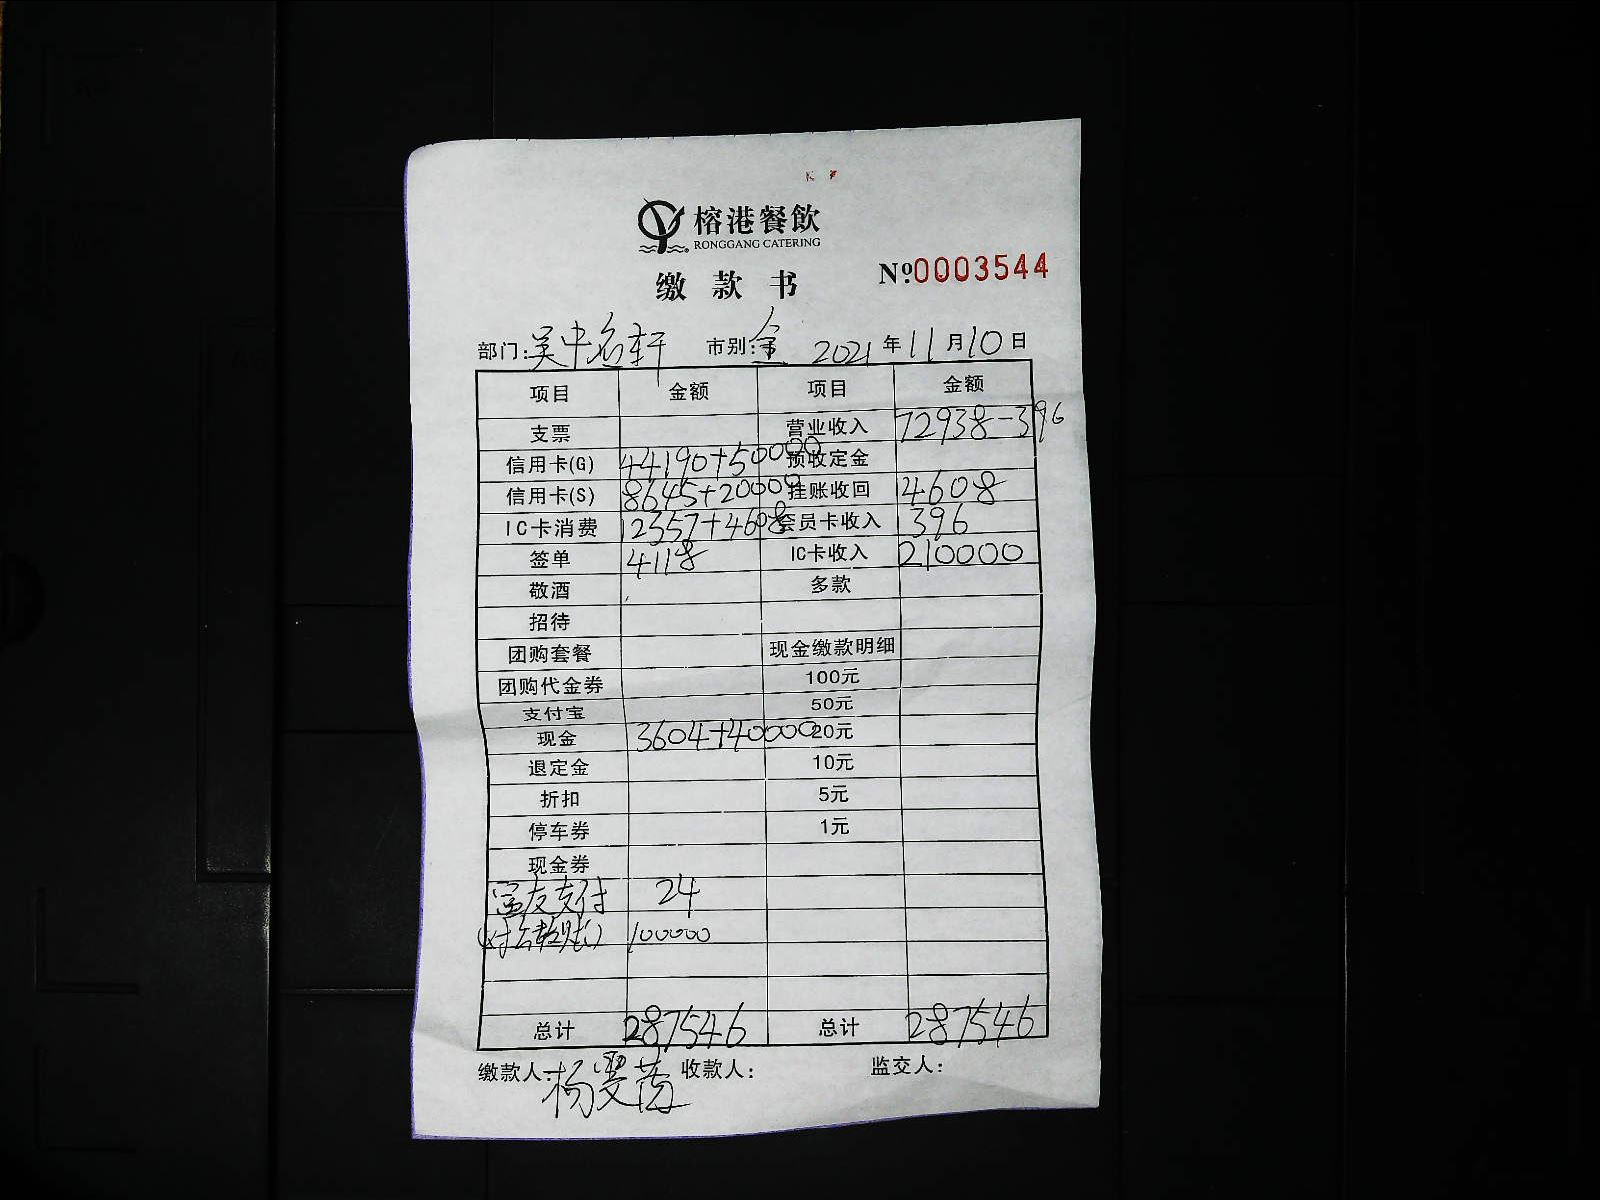 榕港餐飲
RONGGANG CATERING
缴款书 №0003544
部门: 吴中名轩 市别: 全 2021年11月10日
项目 金额 项目 金额
支票 营业收入 72938-396
信用卡(G) 44190+50000 预收定金
信用卡(S) 8645+20000 挂账收回 4608
IC卡消费 12357+4608 会员卡收入 396
签单 4118 IC卡收入 210000
敬酒 多款
招待
团购套餐 现金缴款明细
团购代金券 100元
支付宝 50元
现金 3604+40000 20元
退定金 10元
折扣 5元
停车券 1元
现金券
支付 24
(对公转账) 100000
总计 287546 总计 287546
缴款人: 杨 收款人: 监交人: